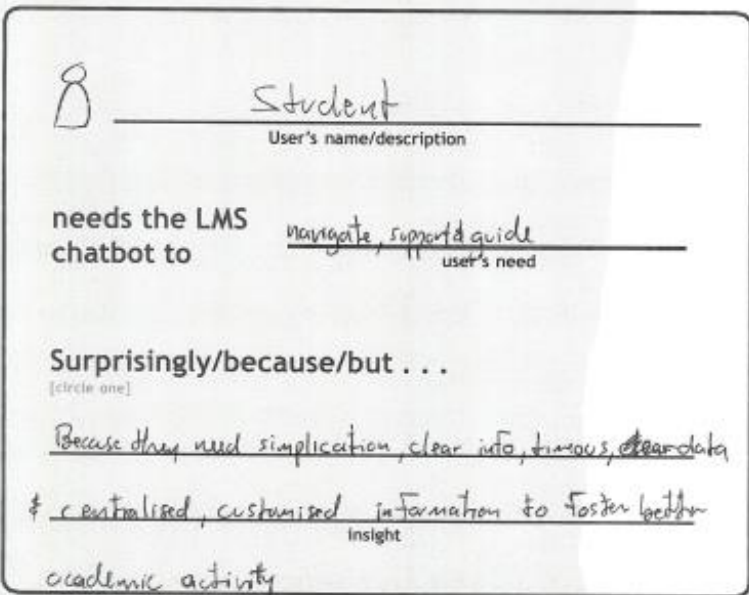 Student
User's name/description
needs the LMS
chatbot to
navigate, support & guide
user's need
Surprisingly/because/but . . .
[circle one]
Because they need simplication, clear info, timeous, data
& centralised, customised information to foster better
insight
academic activity